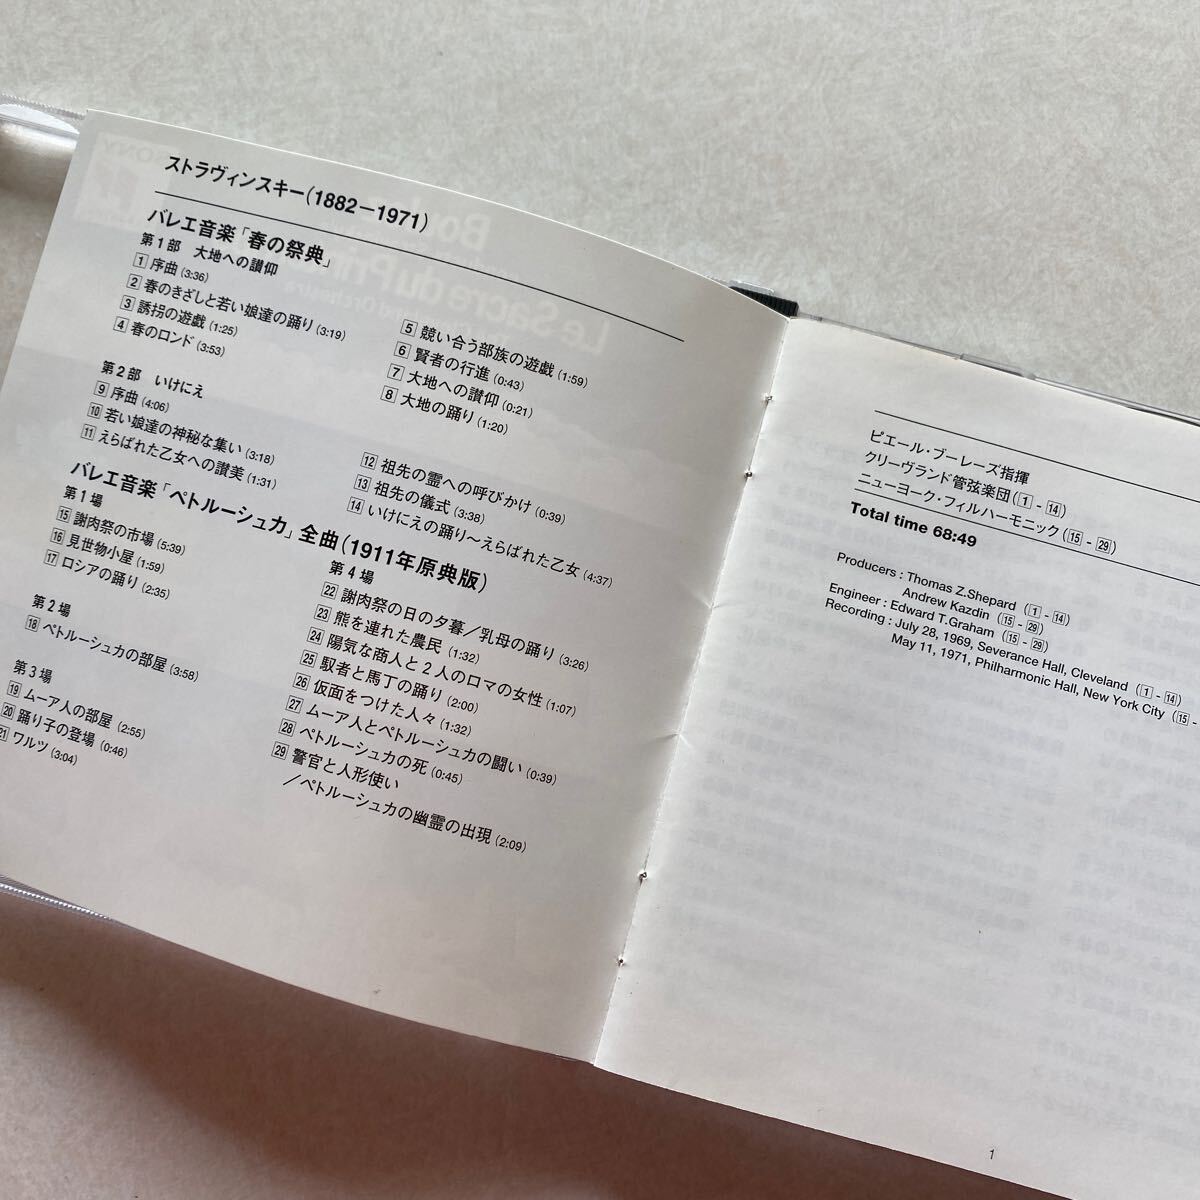 ストラヴィンスキー(1882−1971)
バレエ音楽「春の祭典」
第1部 大地への讃仰
1 序曲 (3:36)
2 春のきざしと若い娘達の踊り (3:19)
3 誘拐の遊戯 (1:25)
4 春のロンド (3:53)
5 競い合う部族の遊戯 (1:59)
6 賢者の行進 (0:43)
7 大地への讃仰 (0:21)
8 大地の踊り (1:20)
第2部 いけにえ
9 序曲 (4:06)
10 若い娘達の神秘な集い (3:18)
11 えらばれた乙女への讃美 (1:31)
12 祖先の霊への呼びかけ (0:39)
13 祖先の儀式 (3:38)
14 いけにえの踊り〜えらばれた乙女 (4:37)
バレエ音楽「ペトルーシュカ」全曲(1911年原典版)
第1場
15 謝肉祭の市場 (5:39)
16 見世物小屋 (1:59)
17 ロシアの踊り (2:35)
第2場
18 ペトルーシュカの部屋 (3:58)
第3場
19 ムーア人の部屋 (2:55)
20 踊り子の登場 (0:46)
21 ワルツ (3:04)
第4場
22 謝肉祭の日の夕暮/乳母の踊り (3:26)
23 熊を連れた農民 (1:32)
24 陽気な商人と2人のロマの女性 (1:07)
25 馭者と馬丁の踊り (2:00)
26 仮面をつけた人々 (1:32)
27 ムーア人とペトルーシュカの闘い (0:39)
28 ペトルーシュカの死 (0:45)
29 警官と人形使い
/ペトルーシュカの幽霊の出現 (2:09)
ピエール・ブーレーズ指揮
クリーヴランド管弦楽団(1 - 14)
ニューヨーク・フィルハーモニック(15 - 29)
Total time 68:49
Producers : Thomas Z.Shepard (1 - 14)
Andrew Kazdin (15 - 29)
Engineer : Edward T.Graham (15 - 29)
Recording : July 28, 1969, Severance Hall, Cleveland (1 - 14)
May 11, 1971, Philharmonic Hall, New York City (15 -
1